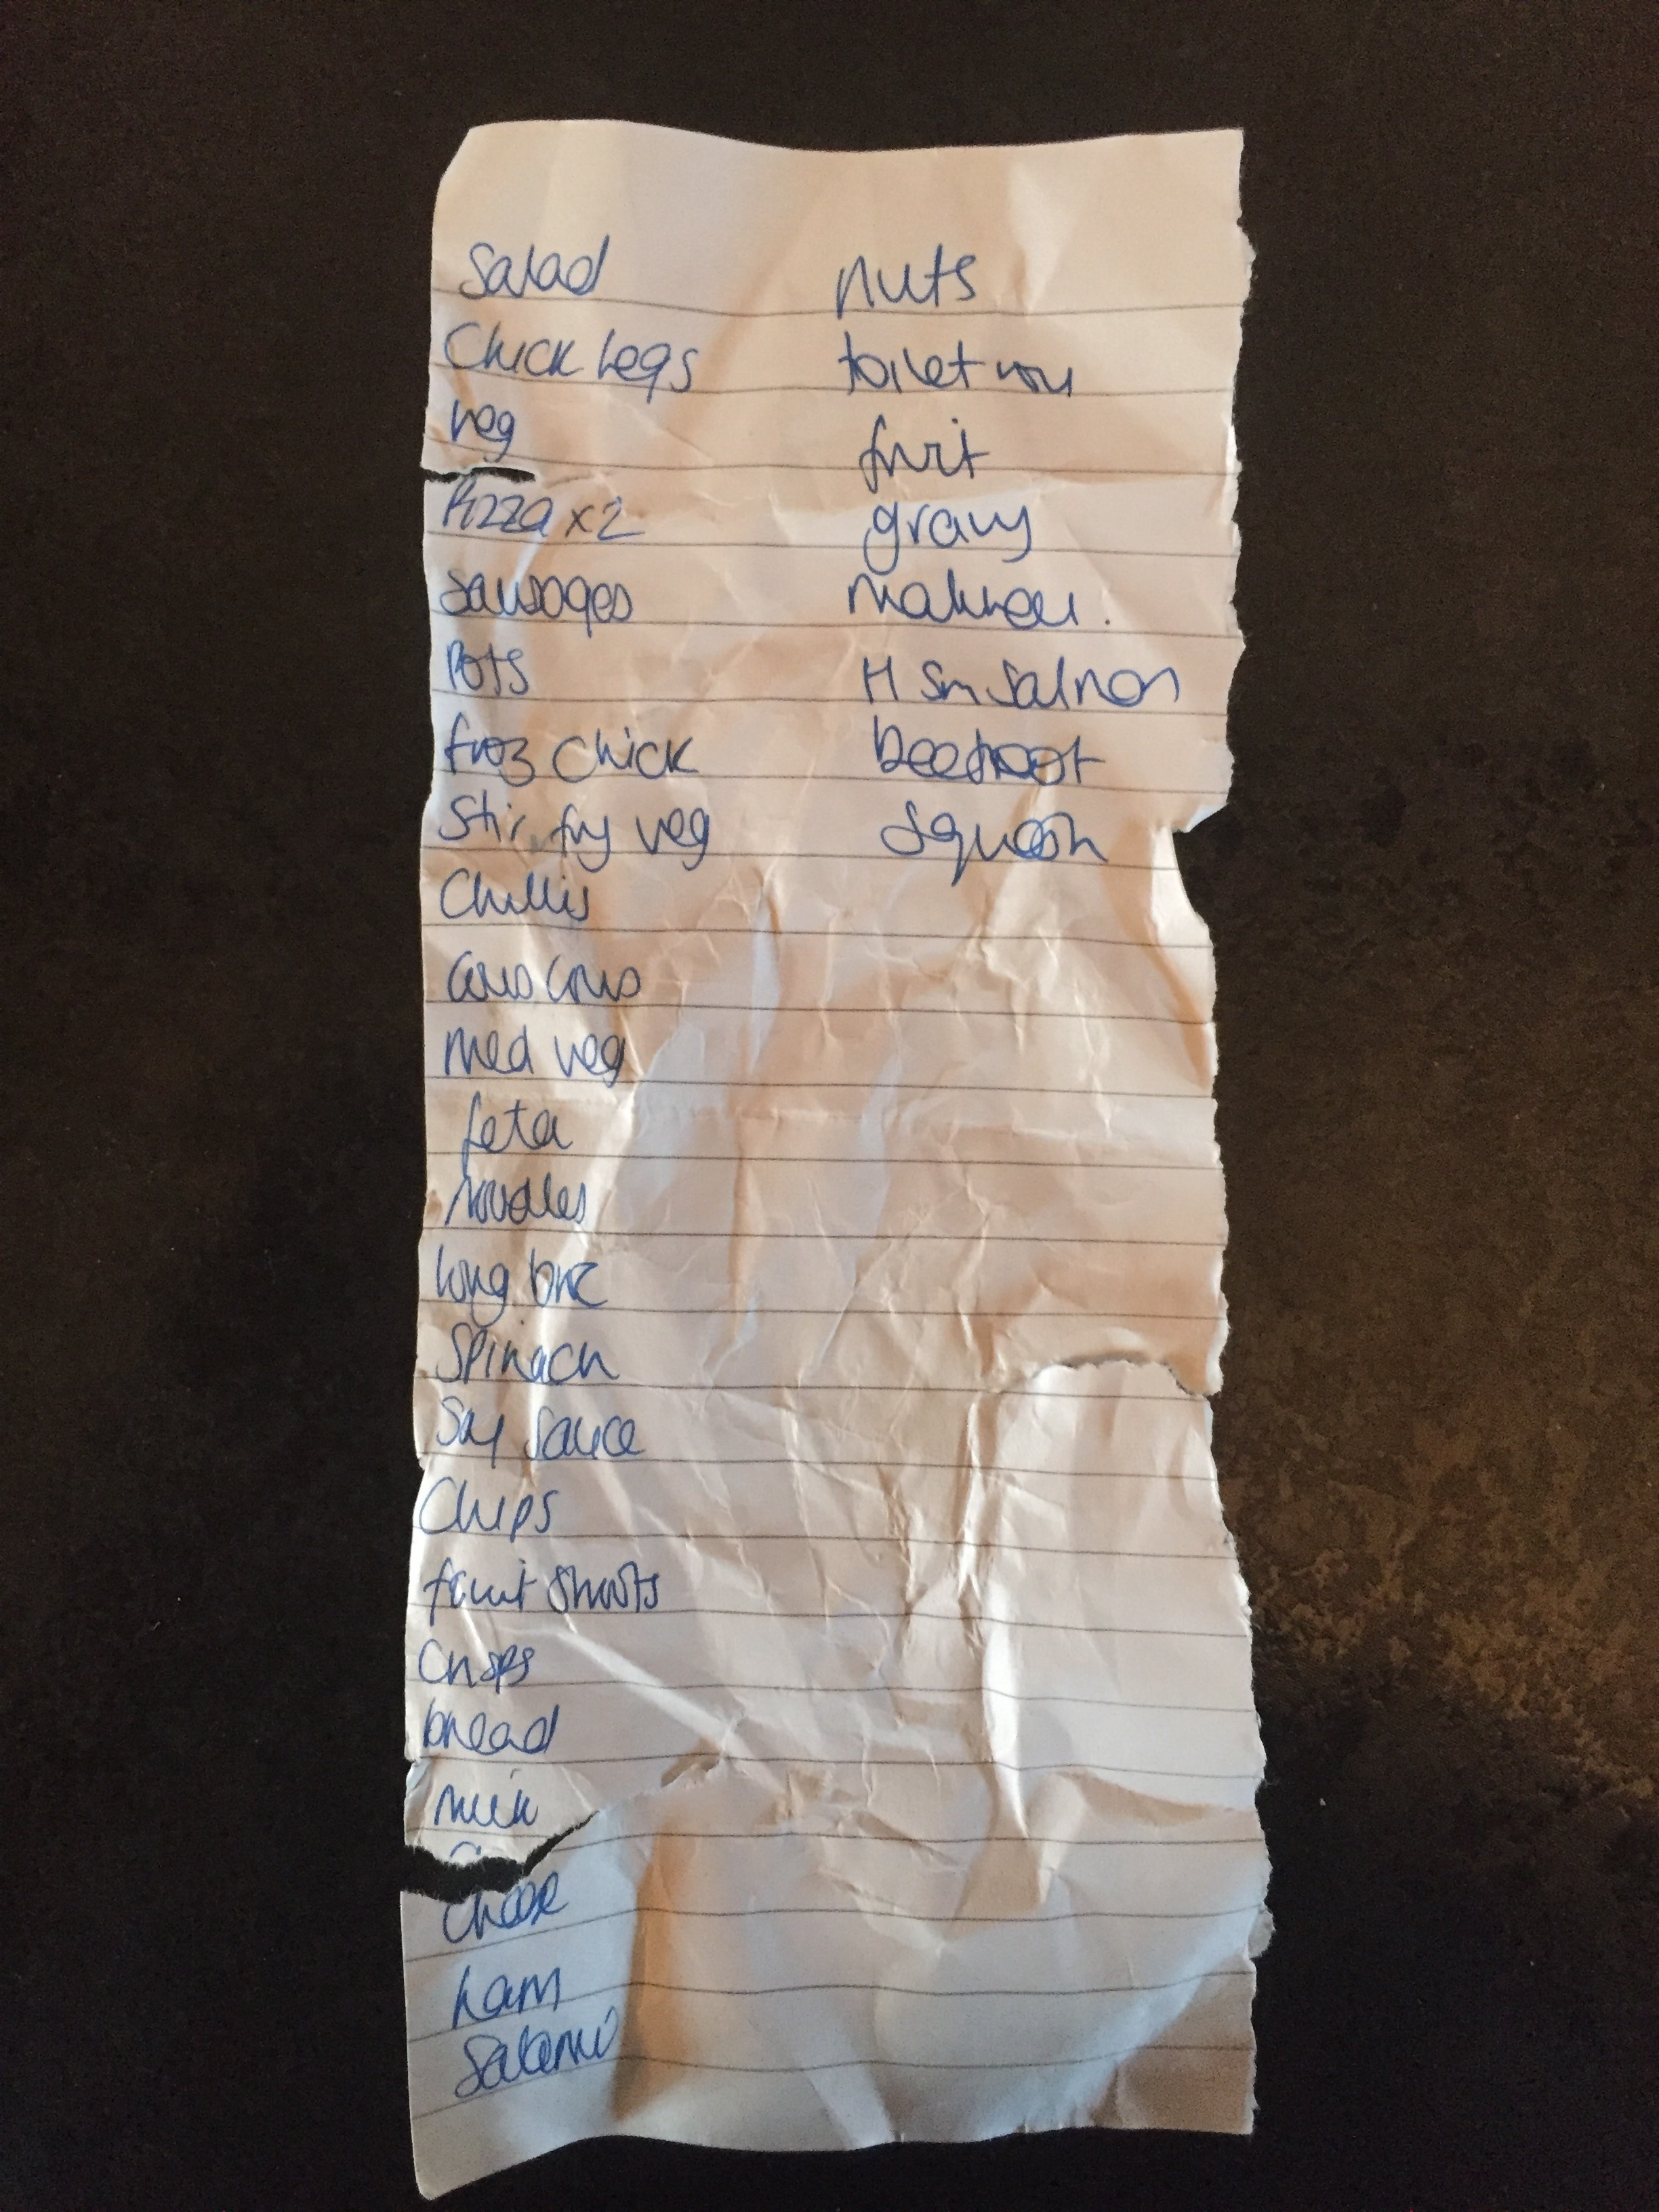 Salad
Chick legs
veg
Pizza x2
Sausages
Pots
froz chick
Stir fry veg
Chillis
Cous Cous
Med veg
feta
Noodles
long
Spinach
Soy Sauce
Chips
fruit shoots
Crisps
bread
milk
Cheese
ham
Salami
nuts
toilet roll
fruit
gravy
H Sm Salmon
beetroot
Squash